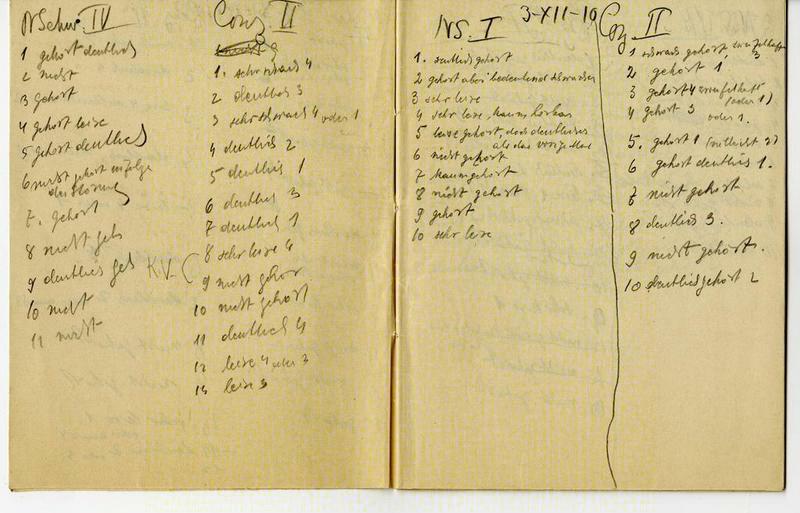 IV
1 gehört deutlich
2 nicht
3 gehört
4 gehört leise
5 gehört deutlich
6 nicht gehört infolge
der Störung
7. gehört
8 nicht geh
9 deutlich geh K.V.
10 nicht
11 nicht
II
1. sehr schwach 4
2 deutlich 3
3 sehr schwach 4 oder 1
4 deutlich 2
5 deutlich 1
6 deutlich 3
7 deutlich 1
8 sehr leise 4
9 nicht gehör
10 nicht gehört
11 deutlich 4
12 leise 4 oder 3
13 leise 3
NS. I 3-XII-10
1. deutlich gehört
2 gehört aber bedeutend schwächer
3 sehr leise
4 sehr leise, kaum hörbar
5 leise gehört, doch deutlicher
als das vorige Mal
6 nicht gehört
7 kaum gehört
8 nicht gehört
9 gehört
10 sehr leise
II
1 schwach gehört zweifelhaft
3
2 gehört 1
3 gehört 4 zweifelhaft
(oder 1)
4 gehört 3
oder 1.
5. gehört 1 (vielleicht 2)
6 gehört deutlich 1.
7 nicht gehört
8 deutlich 3.
9 nicht gehört.
10 deutlich gehört 2